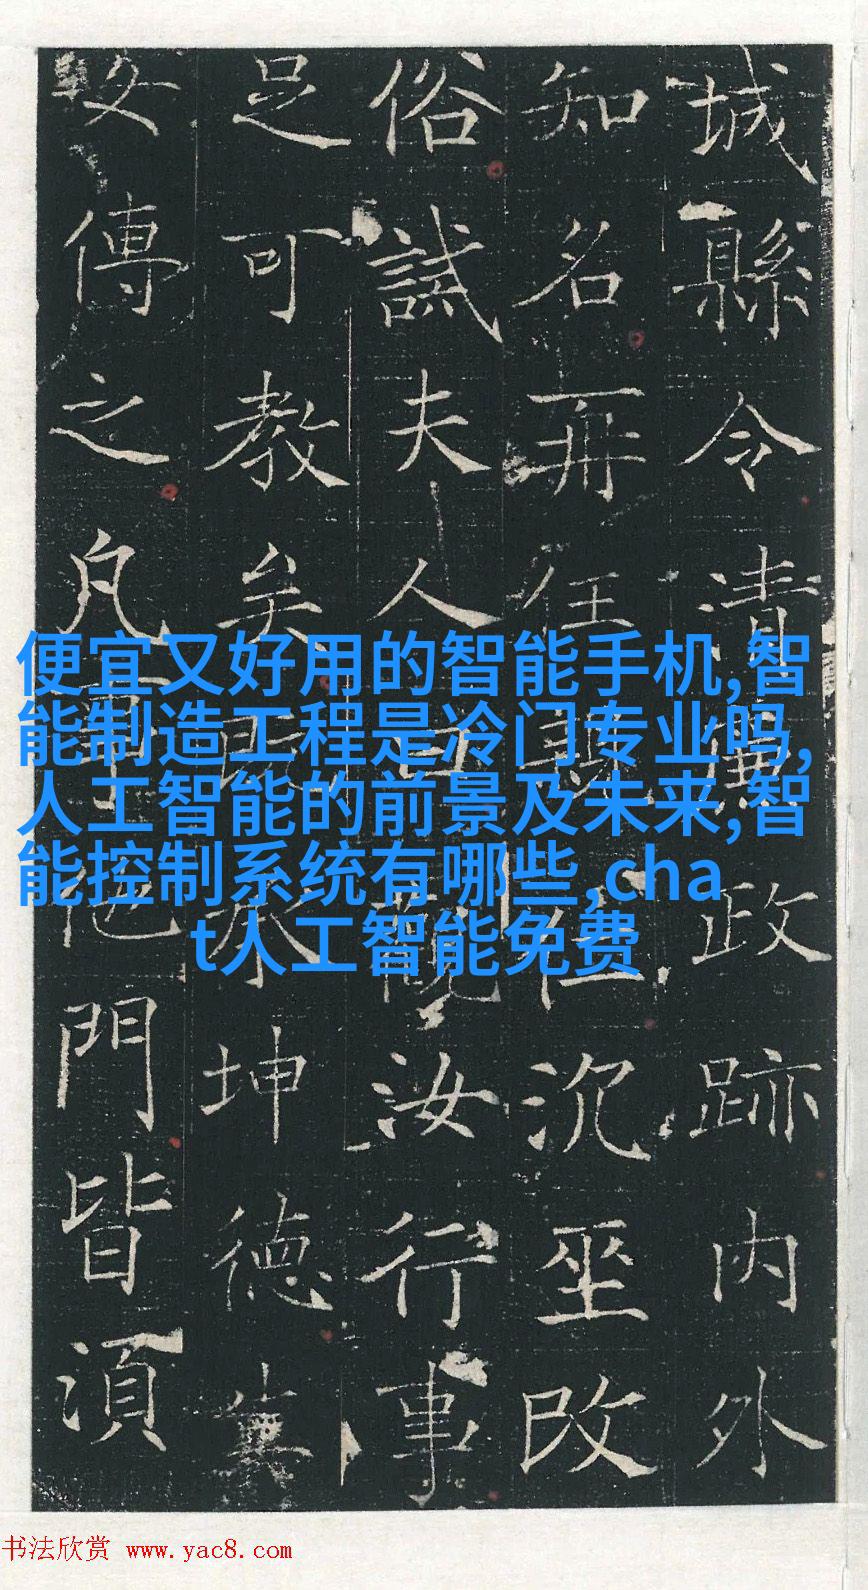 城縣令清廉政跡內外
知名再任縣任沉坐改
俗誡夫人耳觀汝行事
足可教矣既承坤德奠
女傳之凡事他門皆須
便宜又好用的智能手机,智
能制造工程是冷门专业吗,
人工智能的前景及未来,智
能控制系统有哪些,cha
t人工智能免费
书法欣赏 www.yac8.com